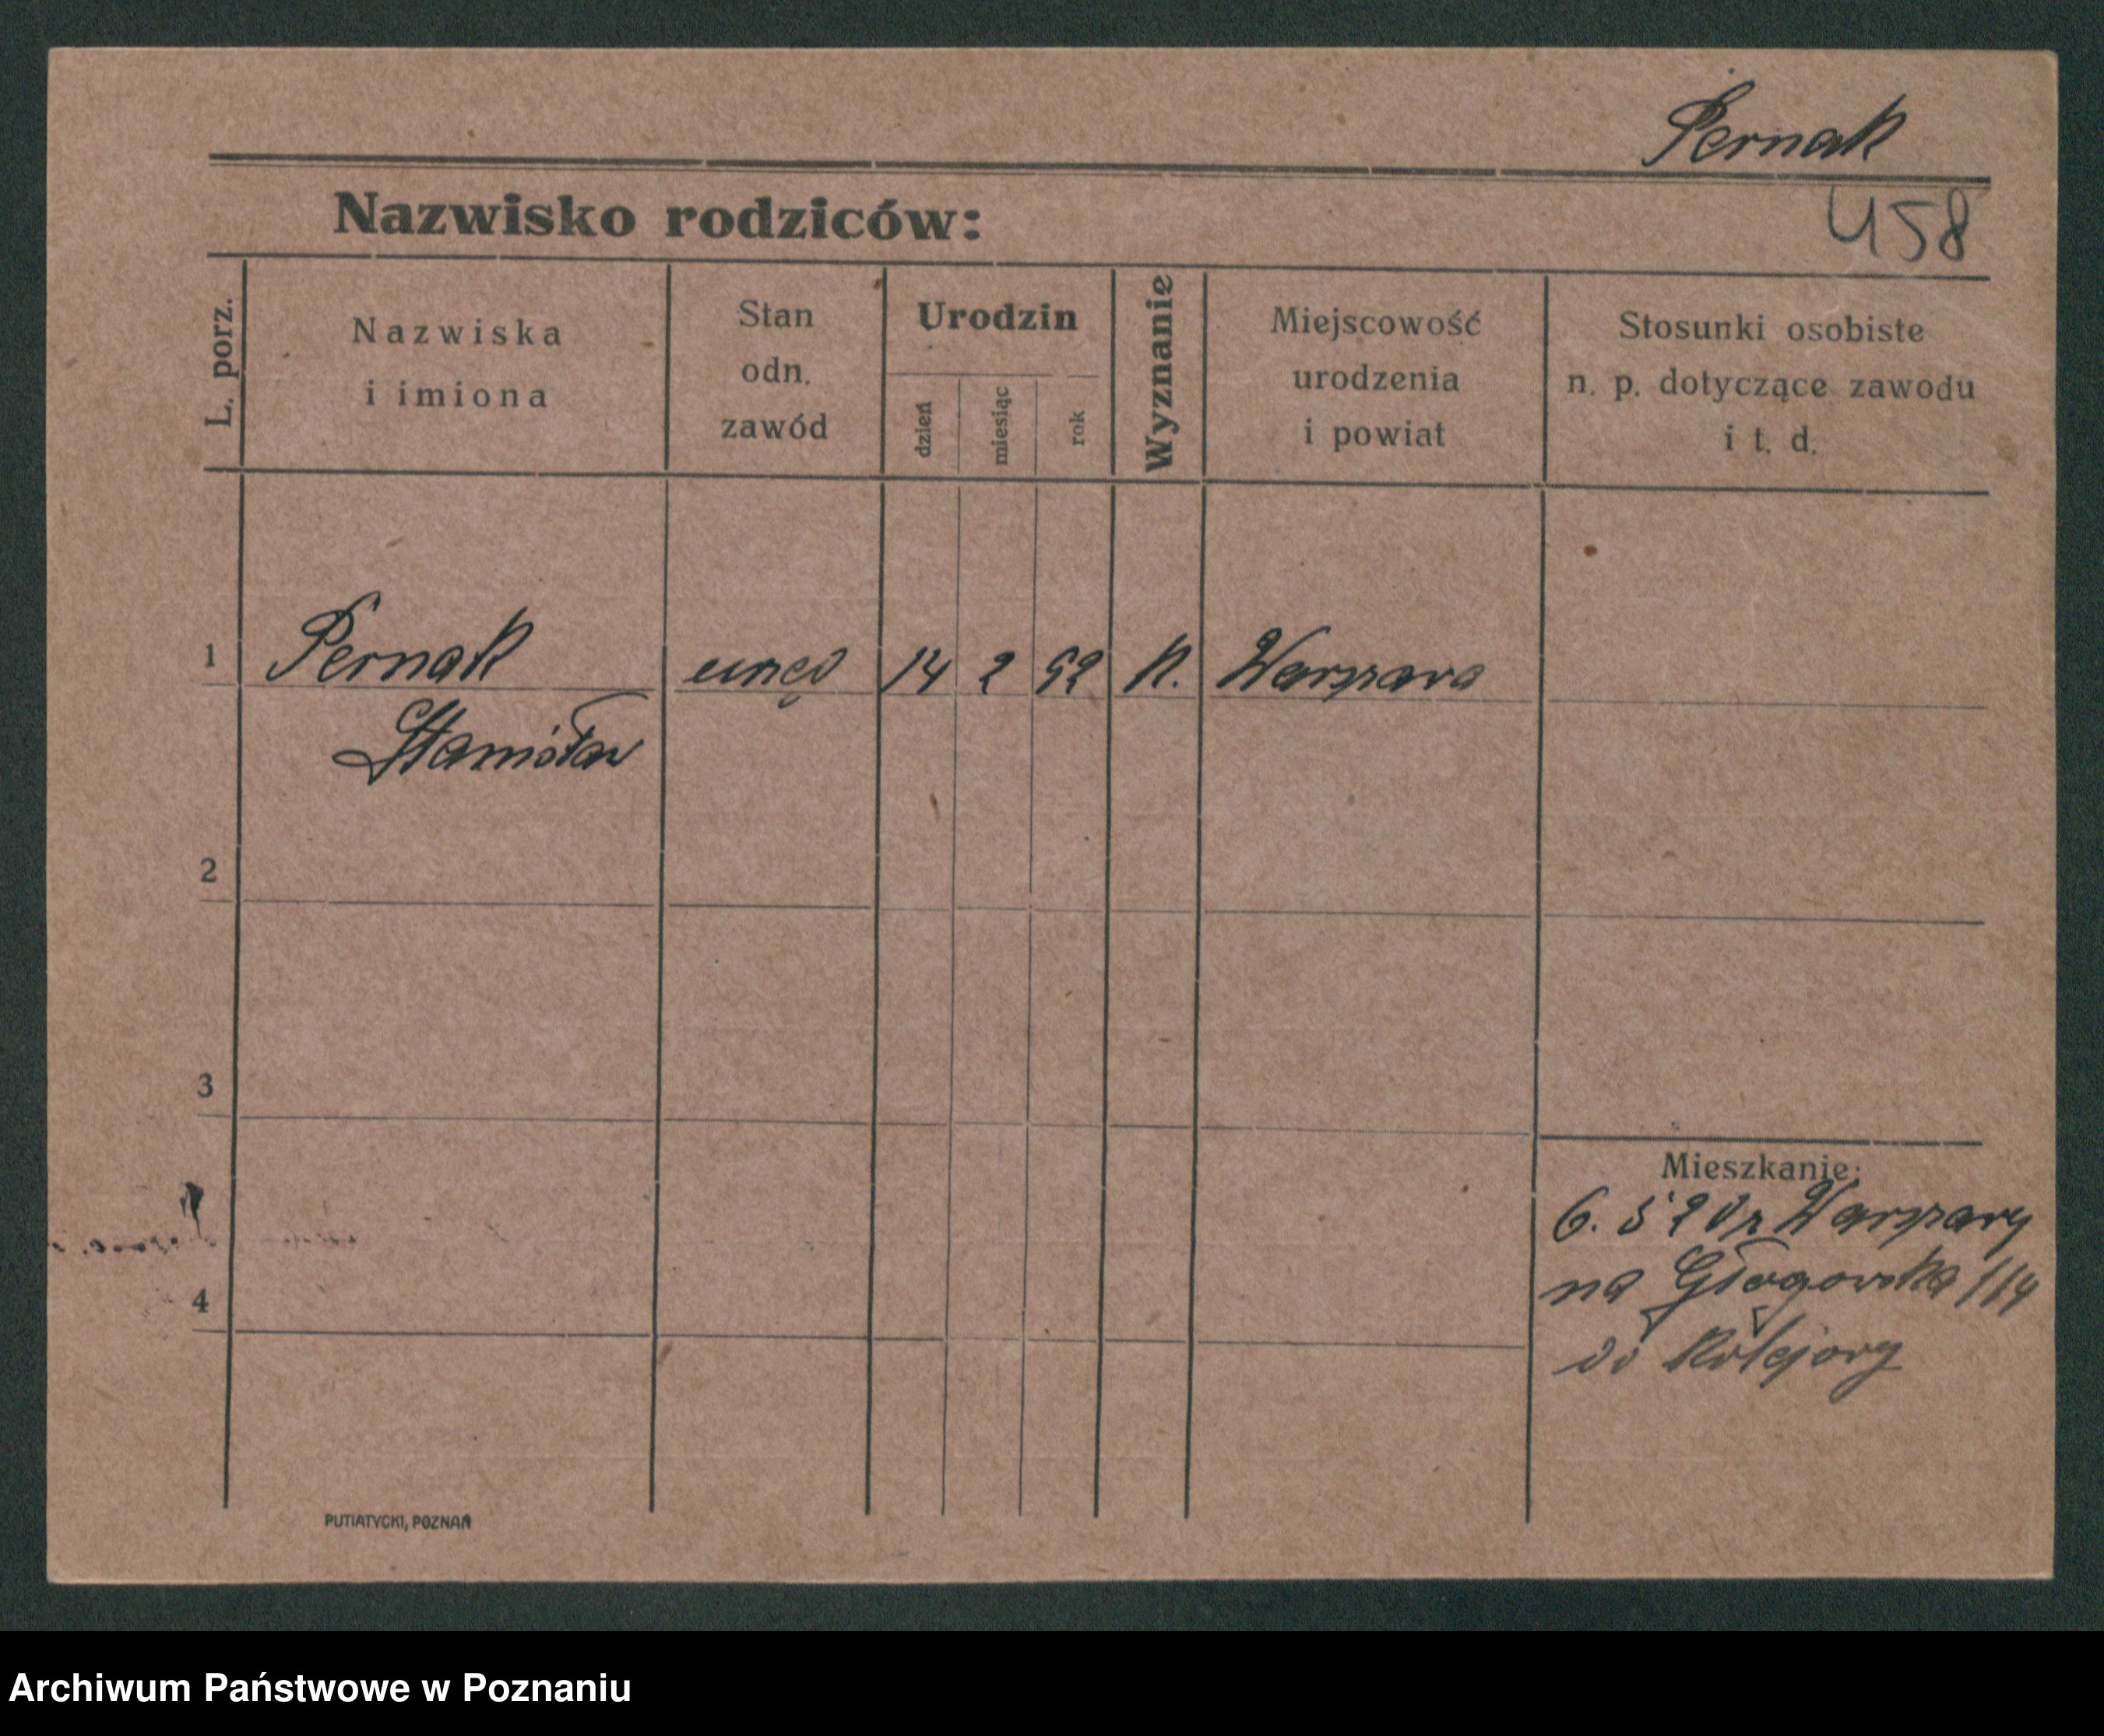 Pernak
Nazwisko rodziców:
458
L. porz.
Nazwiska
i imiona
Stan
odn.
zawód
Urodzin
dzień
miesiąc
rok
Wyznanie
Miejscowość
urodzenia
i powiat
Stosunki osobiste
n. p. dotyczące zawodu
i t. d.
1 Pernak urzęd 14 2 92 K. Warszawa
Stanisław
2
3
Mieszkanie:
6. 5 20 z Warszawy
na Głogowska 114
4
do Kolejowy
PUTIATYCKI, POZNAŃ
Archiwum Państwowe w Poznaniu